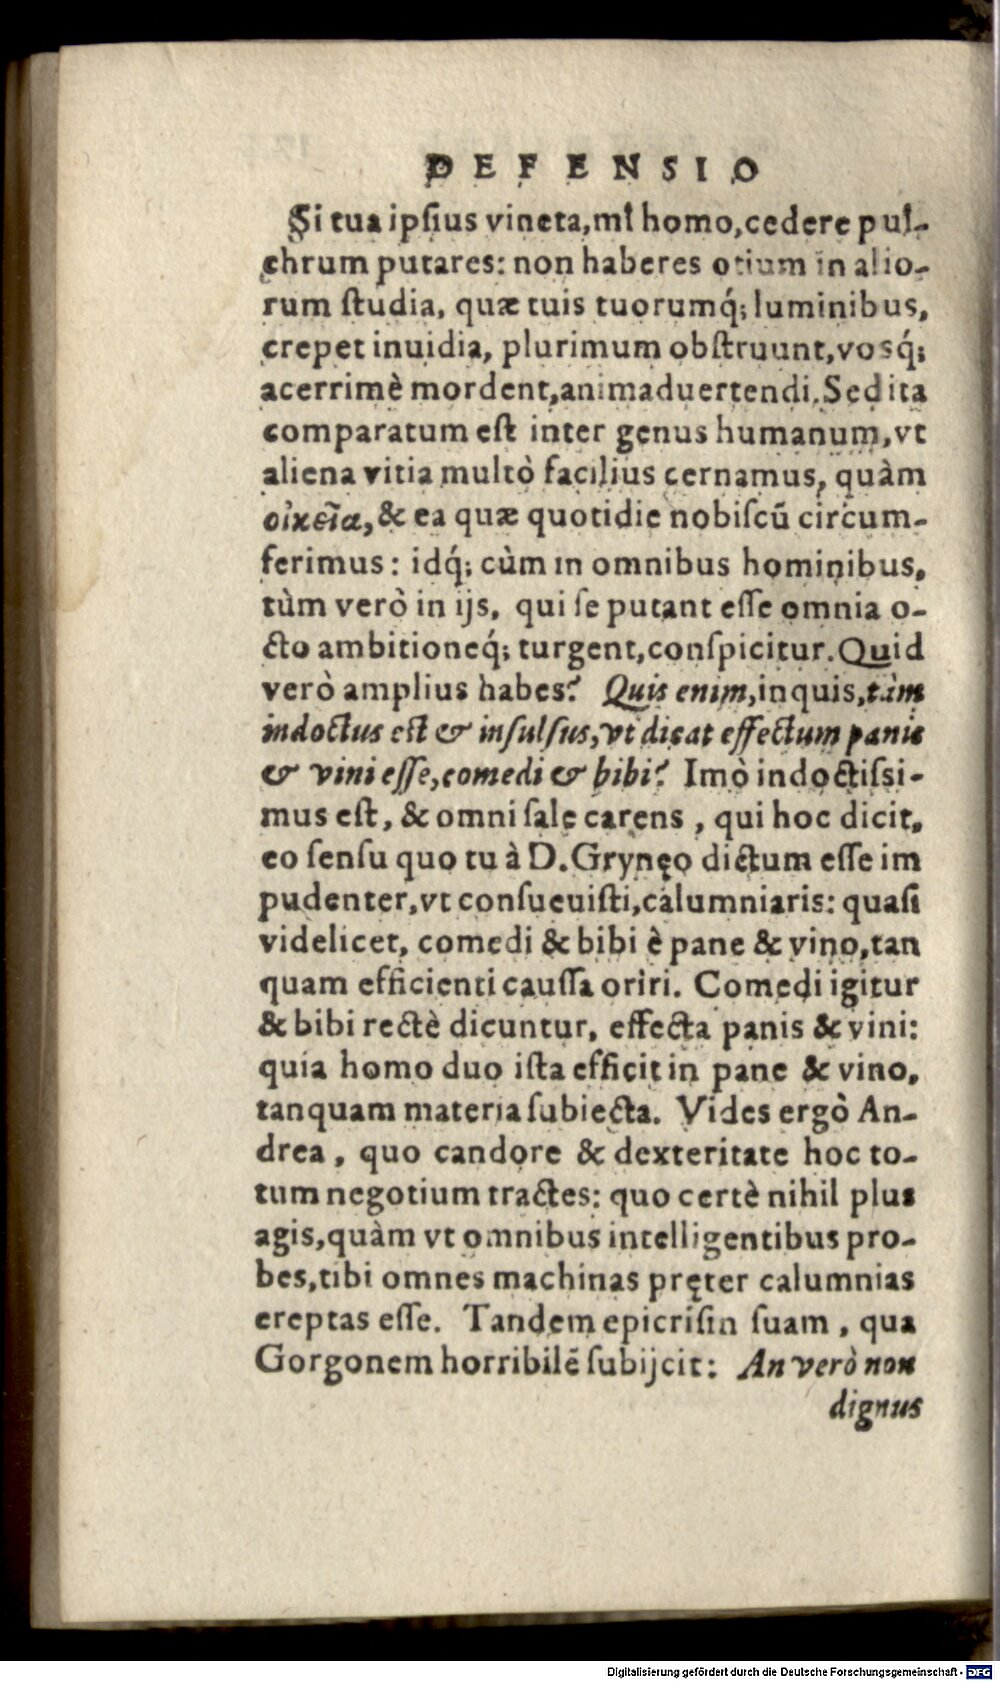 DEFENSIO
Si tua ipſius vineta, mi homo, cedere pul-
chrum putares: non haberes otium in alio-
rum ſtudia, quæ tuis tuorumq́; luminibus,
crepet inuidia, plurimum obſtruunt, vosq́;
acerrimè mordent, animaduertendi. Sed ita
comparatum eſt inter genus humanum, vt
aliena vitia multò facilius cernamus, quàm
οἰκεῖα, & ea quæ quotidie nobiſcū circum-
ferimus: idq́; cùm in omnibus hominibus,
tùm verò in ijs, qui ſe putant eſſe omnia o-
cto ambitioneq́; turgent, conſpicitur. Quid
verò amplius habes? Quis enim, inquis, tàm
indoctus est & inſulſus, vt dicat effectum panis
& vini eſſe, comedi & bibi? Imò indoctiſsi-
mus eſt, & omni ſale carens, qui hoc dicit,
eo ſenſu quo tu à D. Grynęo dictum eſſe im
pudenter, vt conſueuiſti, calumniaris: quaſi
videlicet, comedi & bibi è pane & vino, tan
quam efficienti cauſſa oriri. Comedi igitur
& bibi rectè dicuntur, effecta panis & vini:
quia homo duo iſta efficit in pane & vino,
tanquam materia ſubiecta. Vides ergò An-
drea, quo candore & dexteritate hoc to-
tum negotium tractes: quo certè nihil plus
agis, quàm vt omnibus intelligentibus pro-
bes, tibi omnes machinas pręter calumnias
ereptas eſſe. Tandem epicriſin ſuam, qua
Gorgonem horribilē ſubijcit: An verò non
dignus
Digitalisierung gefördert durch die Deutsche Forschungsgemeinschaft - DFG